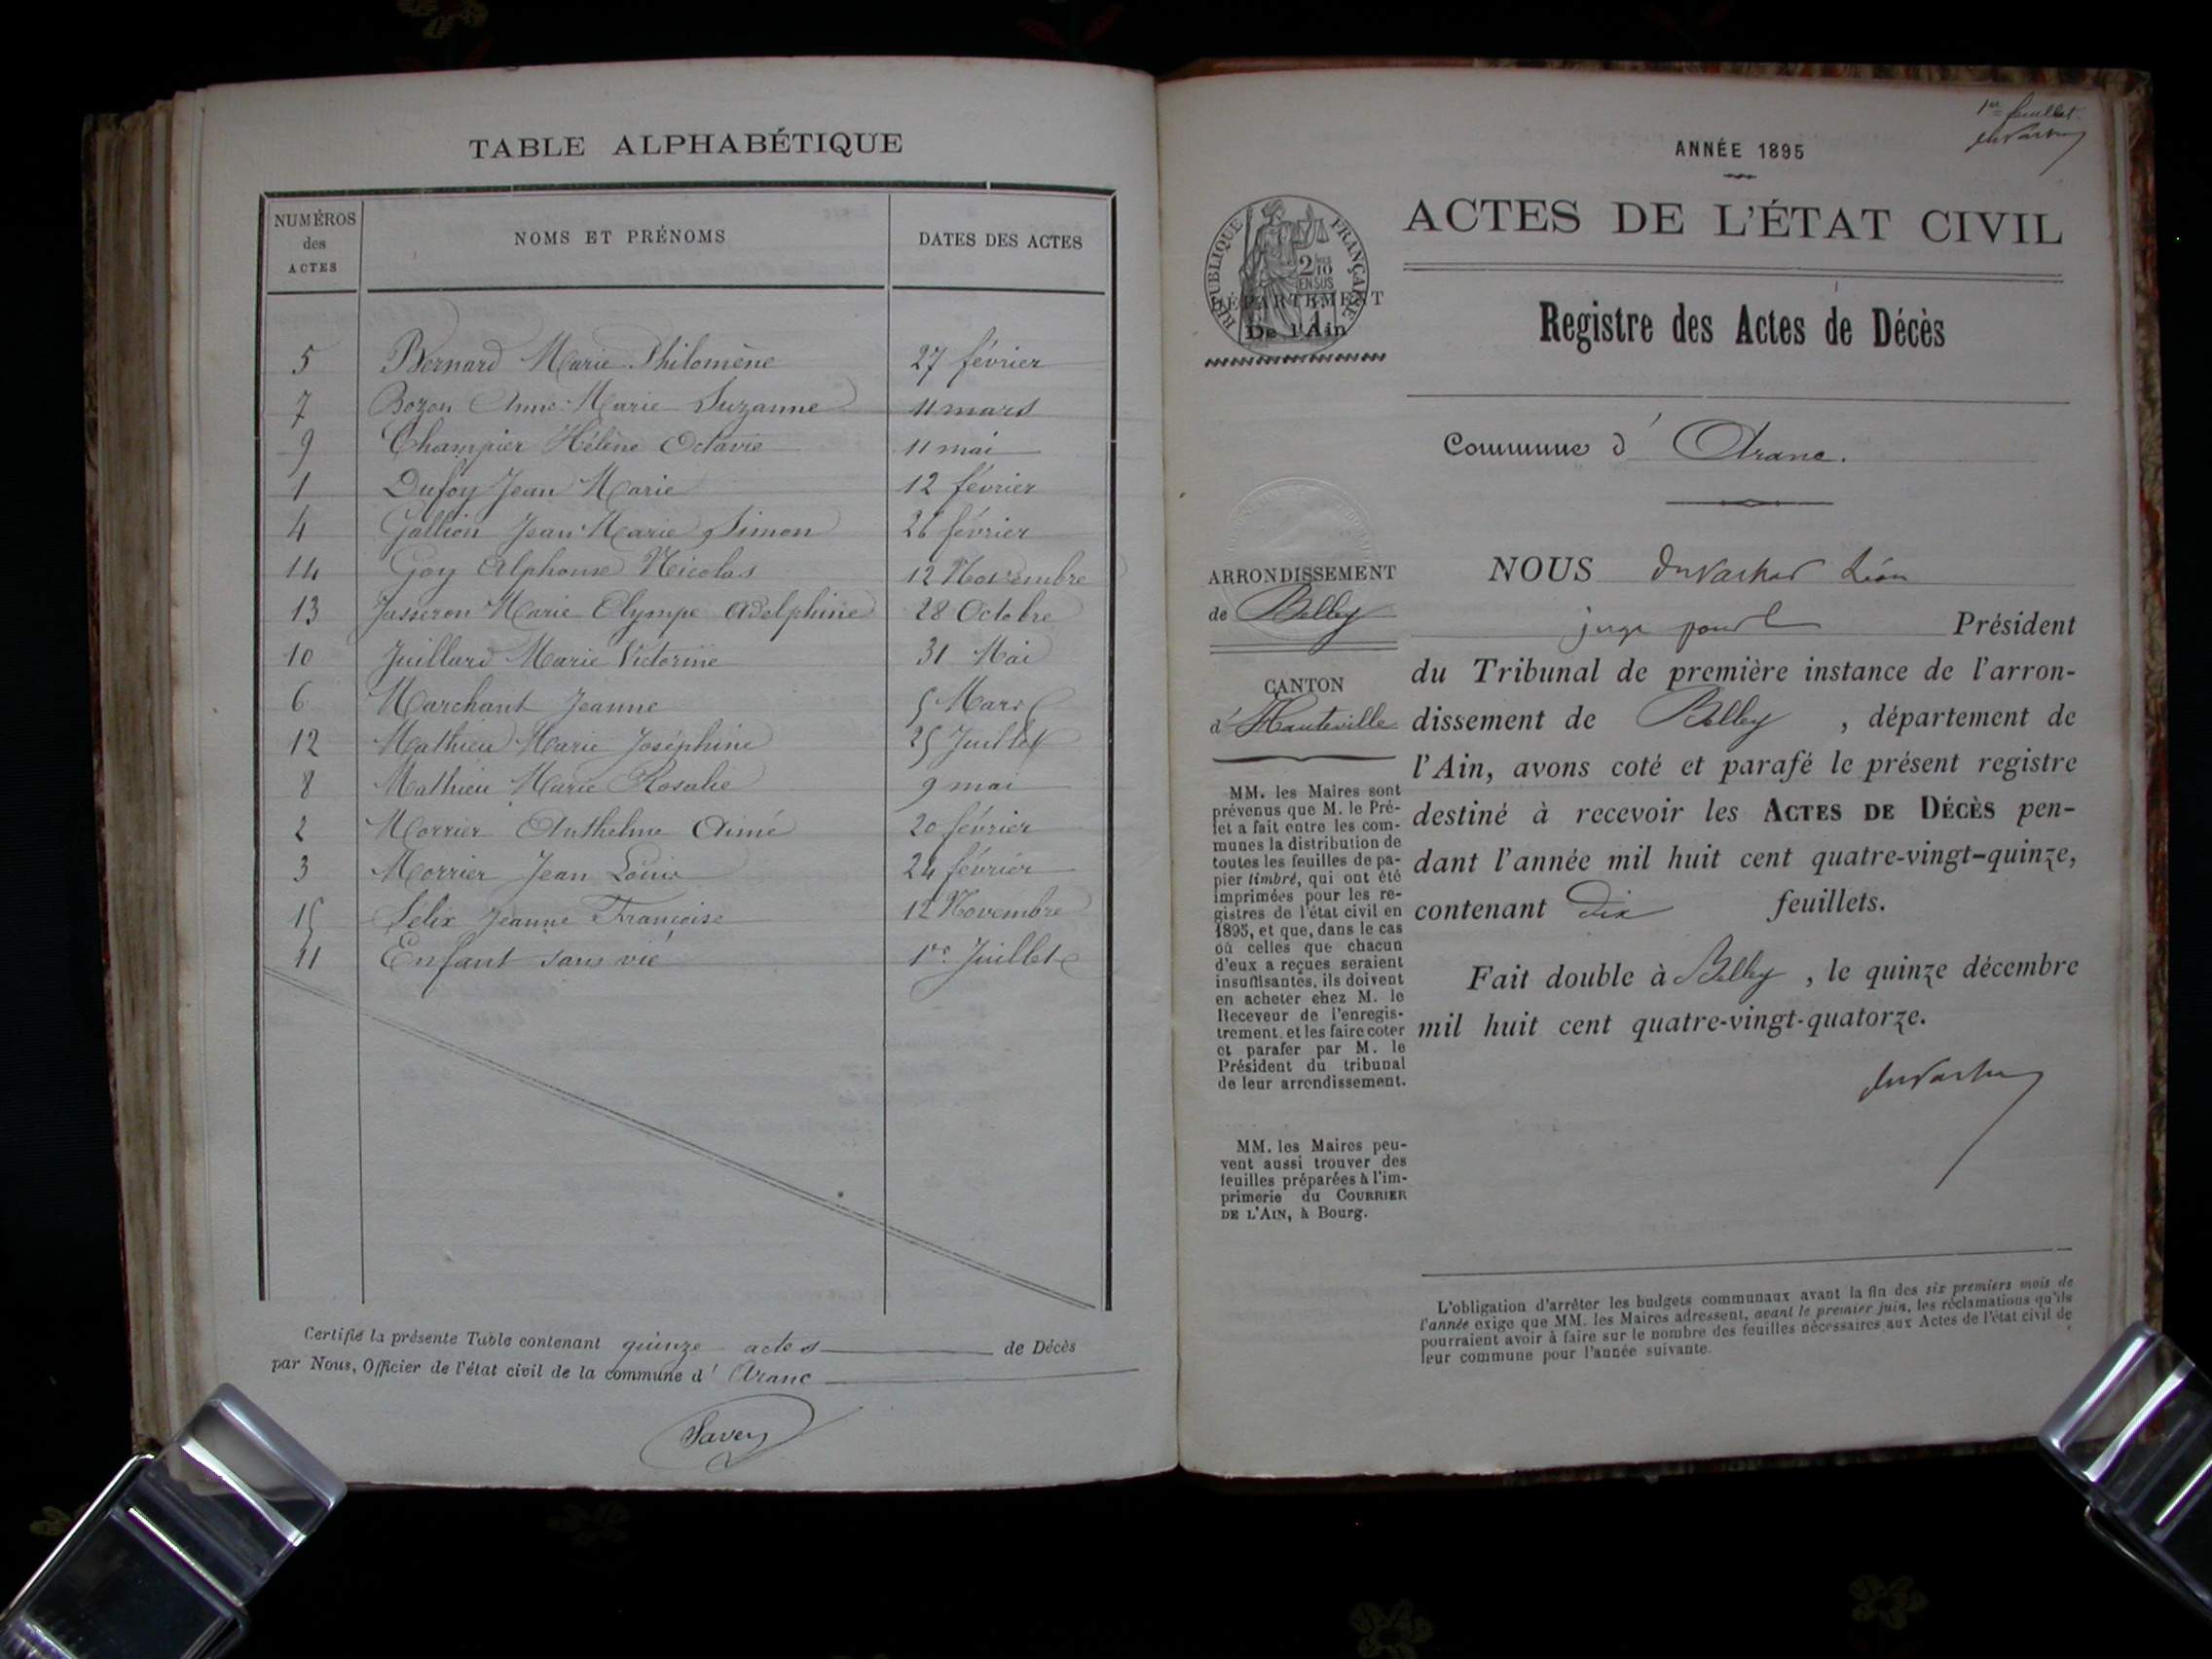 TABLE ALPHABÉTIQUE
NUMÉROS des ACTES NOMS ET PRÉNOMS DATES DES ACTES
5 Bernard Marie Philomène 27 février
7 Bozon Anne Marie Suzanne 11 mars
9 Champier Hélène Octavie 11 mai
1 Dufoy Jean Marie 12 février
4 Gallion Jean Marie Simon 26 février
14 Goy Alphonse Nicolas 12 Novembre
13 Jasseron Marie Olympe Adelphine 28 Octobre
10 Juillard Marie Victorine 31 Mai
6 Marchant Jeanne 5 Mars
12 Mathieu Marie Joséphine 25 Juillet
8 Mathieu Marie Rosalie 9 mai
2 Morrier Anthelme Aimé 20 février
3 Morrier Jean Louis 24 février
15 Jeanne Françoise 12 Novembre
11 Enfant sans vie 1er Juillet
Certifié la présente Table contenant quinze actes de Décès
par Nous, Officier de l'état civil de la commune d' Aranc
Savey
1er feuillet
ANNÉE 1895
ACTES DE L'ÉTAT CIVIL
RÉPUBLIQUE FRANÇAISE
2/10 EN SUS
DÉPARTEMENT
De l'Ain
Registre des Actes de Décès
Commune d' Aranc.
ARRONDISSEMENT
de Belley
CANTON
d' Hauteville
MM. les Maires sont
prévenus que M. le Pré-
fet a fait entre les com-
munes la distribution de
toutes les feuilles de pa-
pier timbré, qui ont été
imprimées pour les re-
gistres de l'état civil en
1895, et que, dans le cas
où celles que chacun
d'eux a reçues seraient
insuffisantes, ils doivent
en acheter chez M. le
Receveur de l'enregis-
trement, et les faire coter
et parafer par M. le
Président du tribunal
de leur arrondissement.
MM. les Maires peu-
vent aussi trouver des
feuilles préparées à l'im-
primerie du COURRIER
DE L'AIN, à Bourg.
NOUS Léon
juge pour le Président
du Tribunal de première instance de l'arron-
dissement de Belley, département de
l'Ain, avons coté et parafé le présent registre
destiné à recevoir les ACTES DE DÉCÈS pen-
dant l'année mil huit cent quatre-vingt-quinze,
contenant dix feuillets.
Fait double à Belley, le quinze décembre
mil huit cent quatre-vingt-quatorze.
L'obligation d'arrêter les budgets communaux avant la fin des six premiers mois de
l'année exige que MM. les Maires adressent, avant le premier juin, les réclamations qu'ils
pourraient avoir à faire sur le nombre des feuilles nécessaires aux Actes de l'état civil de
leur commune pour l'année suivante.